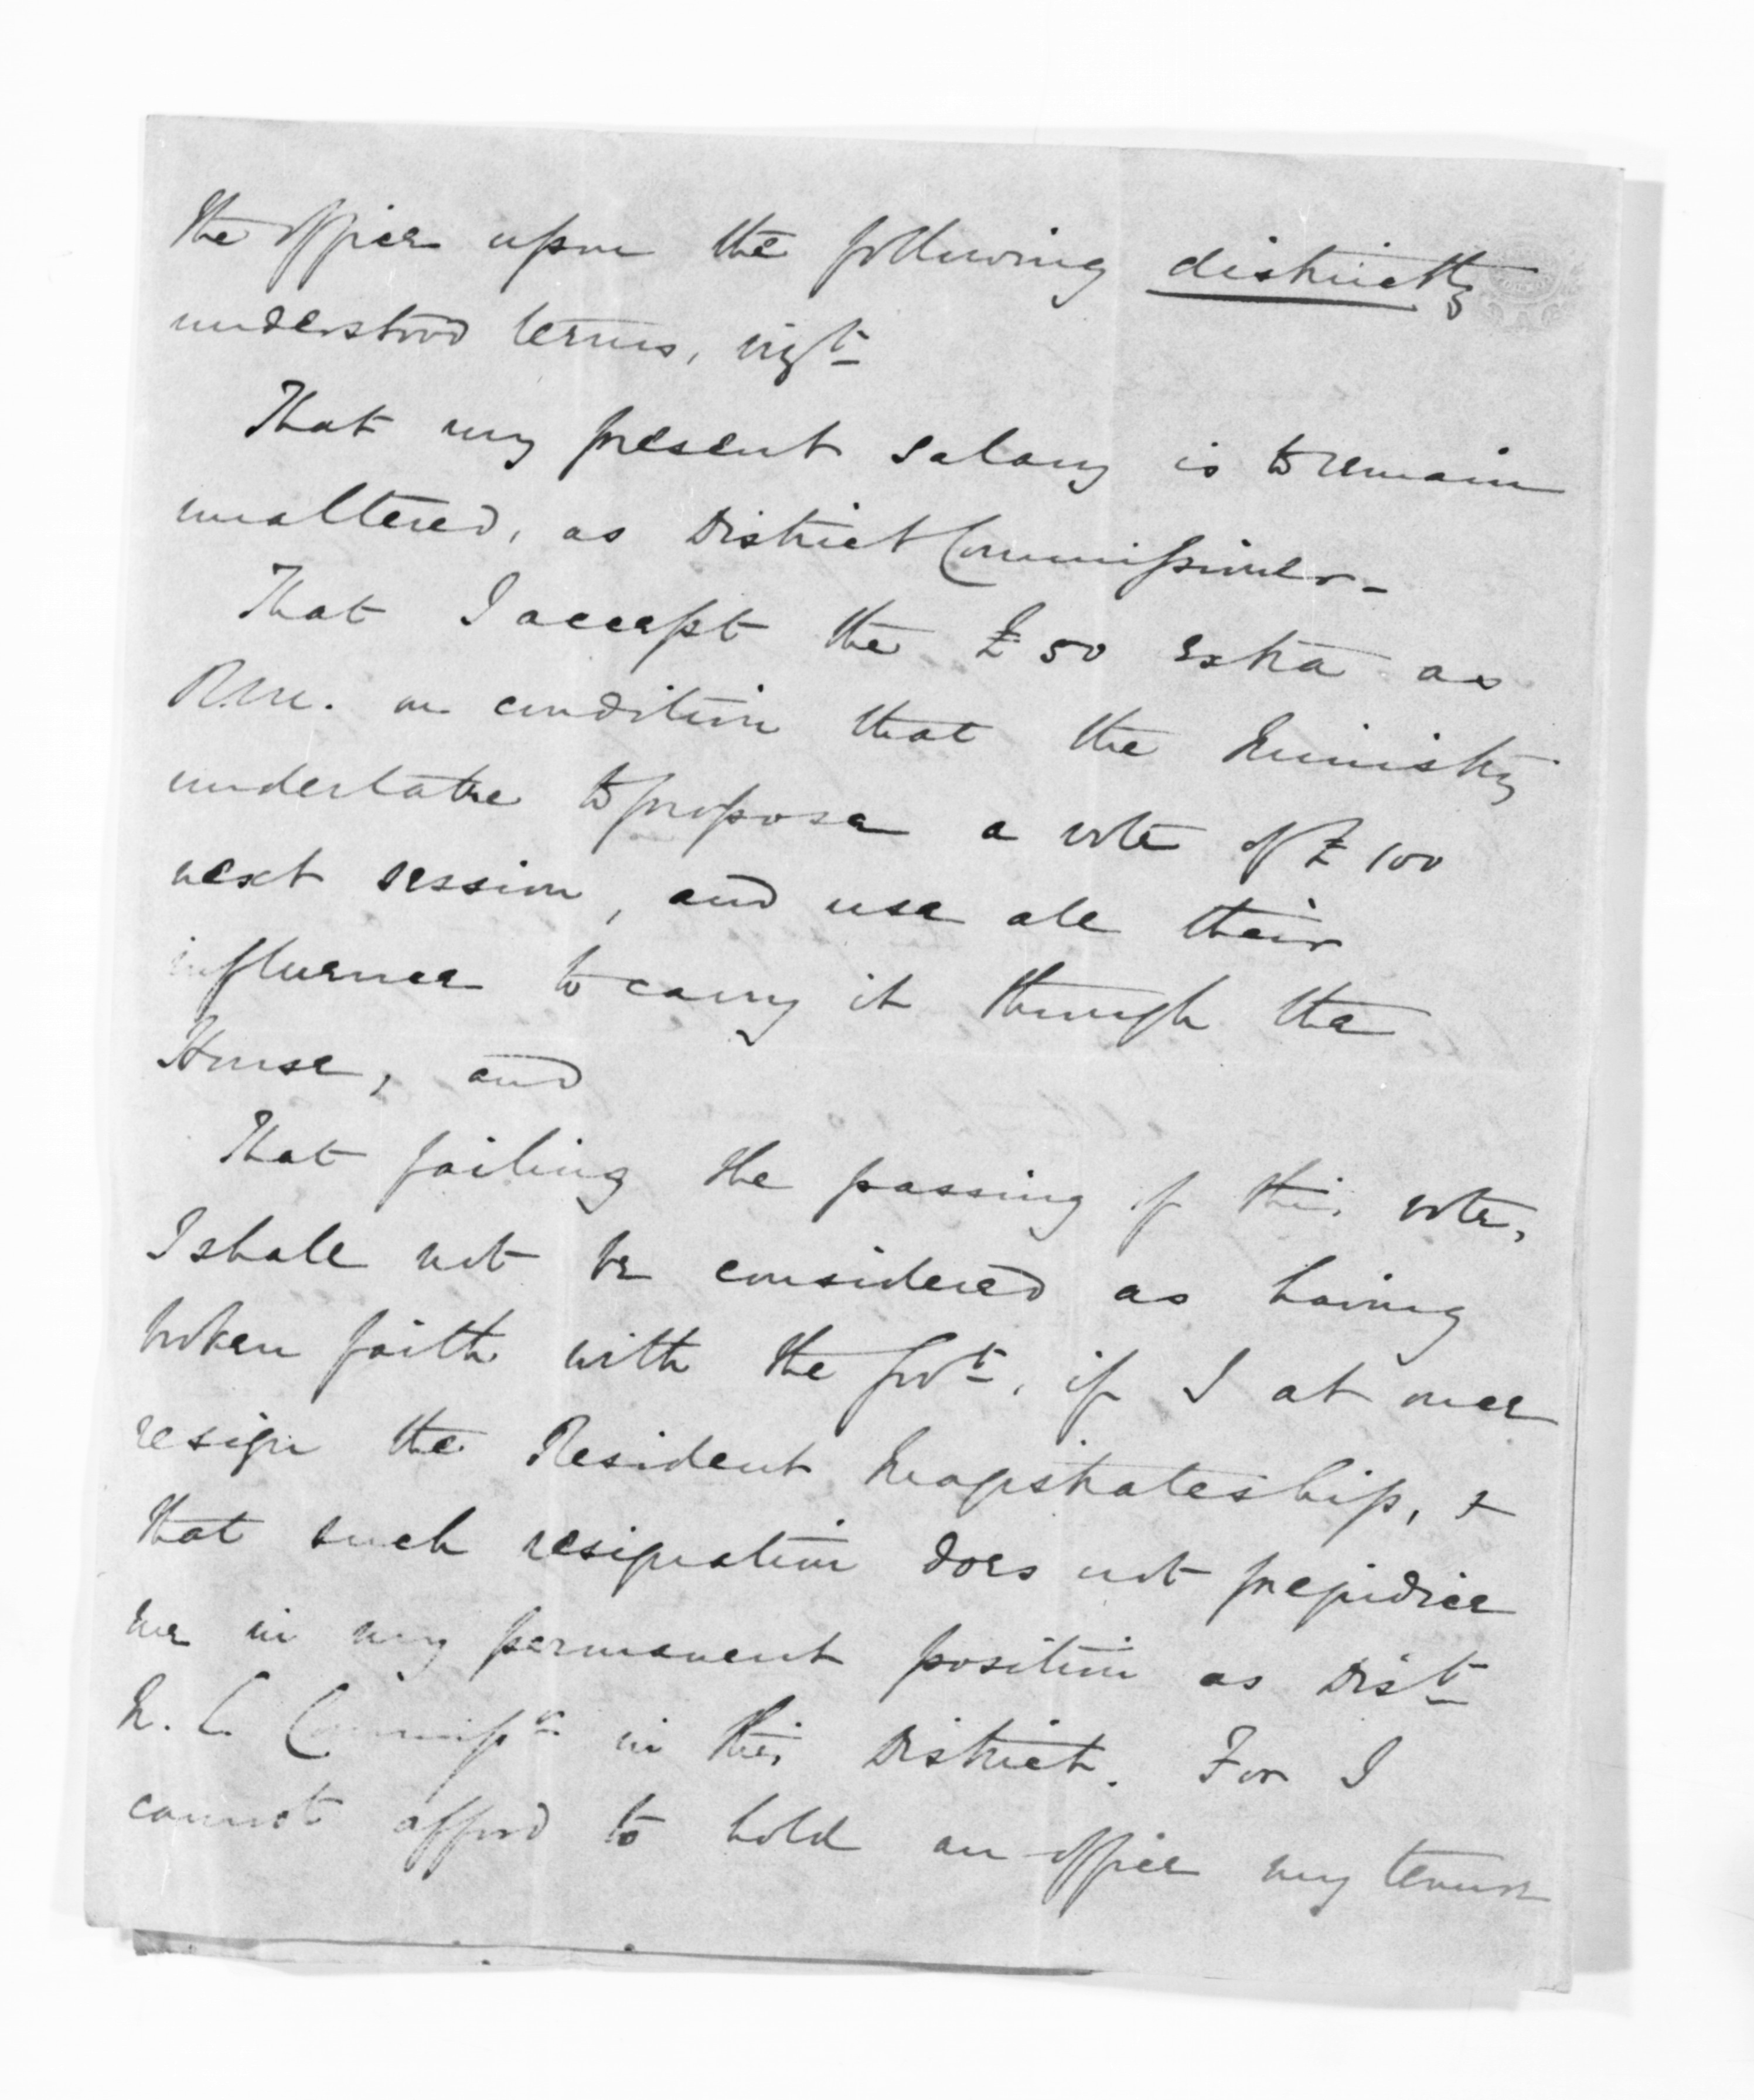 the office upon the following distinctly
understood terms, vizt
That my present salary is to remain
unaltered, as District Commissioner -
That I accept the £50 extra as
R.M. on condition that the Ministry
undertake to propose a vote of £100
next session, and use all their
influence to carry it through the
House, and
That failing the passing of this vote,
I shall not be considered as having
broken faith with the Govt, if I at once
resign the Resident Magistrateship, &
that such resignation does not prejudice
me in my permanent position as Dist
L. C. Commissr in this District. For I
cannot afford to hold an office my tenure